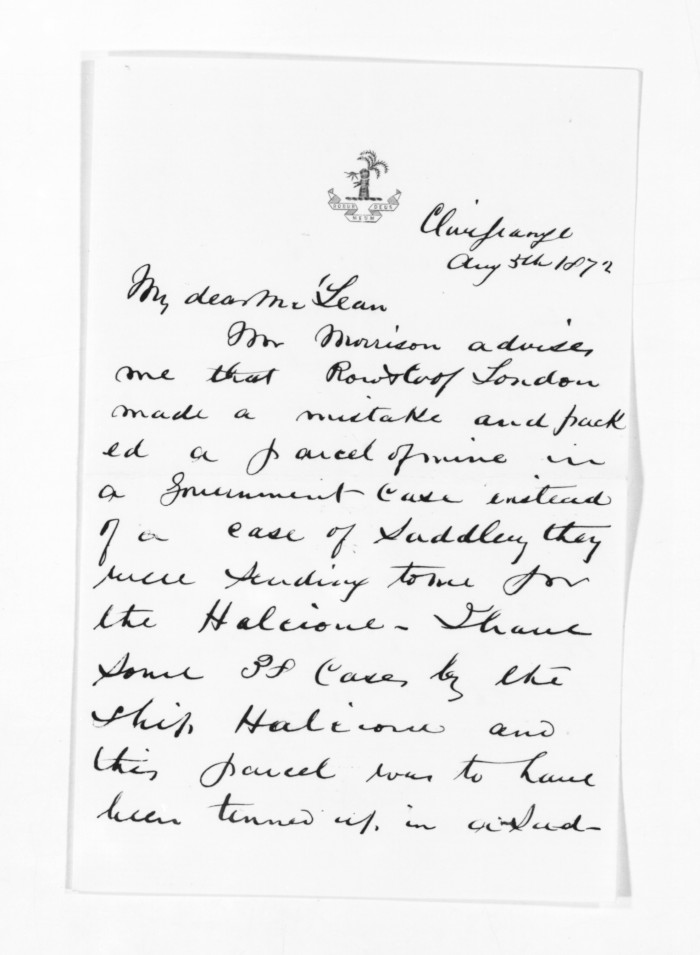 Clive Grange
Aug 5th 1872
My dear McLean
Mr Morrison advises
me that of London
made a mistake and pack
ed a parcel of mine in
a Government Case instead
of a case of Saddlery they
were sending to me for
the Halcione - I have
some 38 Cases by the
Ship Halcione and
this parcel was to have
been tinned up in a Sad-